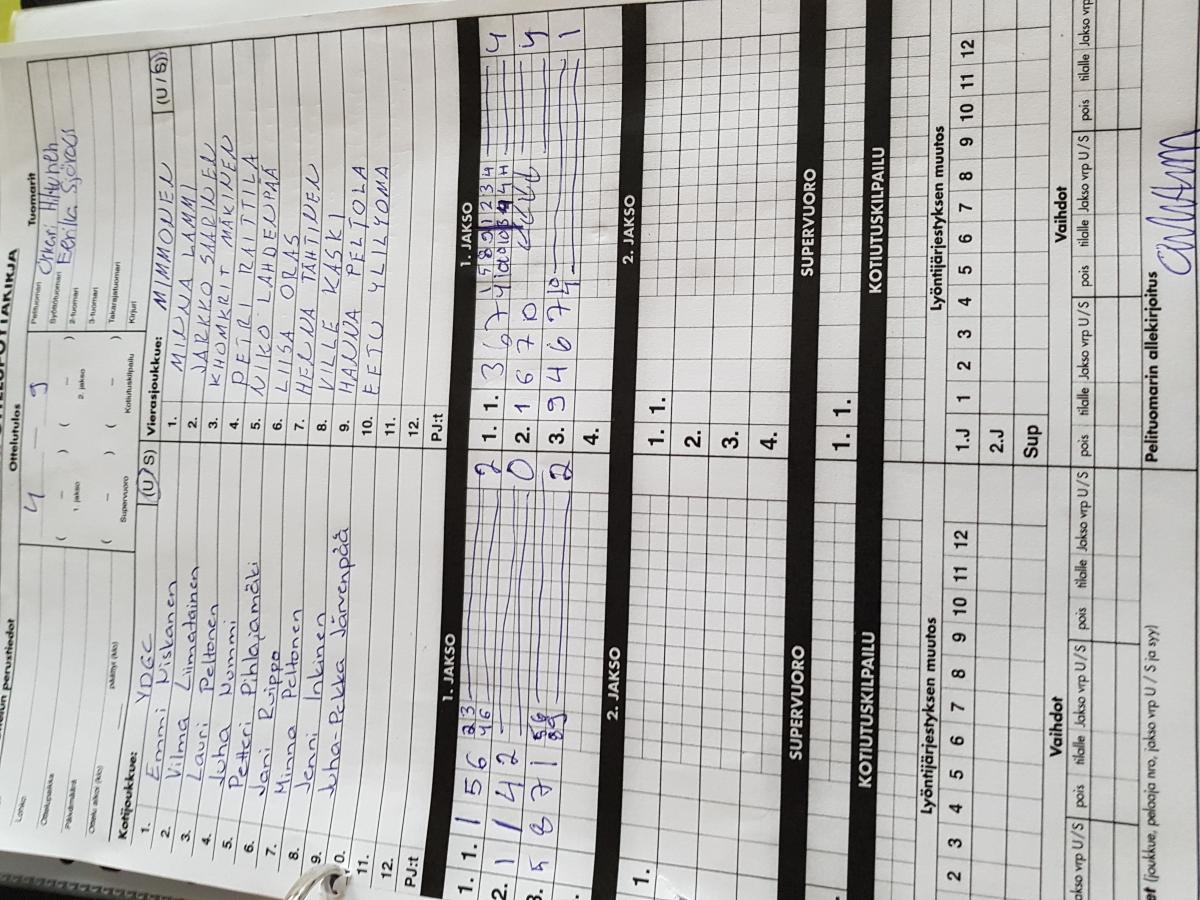 OTTELUPÖYTÄKIRJA
Ottelun perustiedot
Ottelutulos
Tuomarit
Lohko
Ottelupaikka
Päivämäärä
Ottelu alkoi (klo)
päättyi (klo)
4 9
( – ) ( – )
1. jakso
2. jakso
( – ) ( – )
Supervuoro
Kotiutuskilpailu
Pelituomari
Syöttötuomari Eerika Sjöroos
2-tuomari
3-tuomari
Takarajatuomari
Kirjuri
Kotijoukkue: YDGC (U/S)
1. Emmi Niskanen
2. Vilma Liimatainen
3. Lauri Peltonen
4. Juha Nummi
5. Petteri Pihlajamäki
6. Jani Ruippo
7. Minna Peltonen
8. Jenni Inkinen
9. Juha-Pekka Järvenpää
10.
11.
12.
PJ:t
Vierasjoukkue: MIMMONEN (U/S)
1. MINNA LAMMI
2. JARKKO SAARINEN
3. KHOMKRIT MÄKINEN
4. PETRI RAITTILA
5. NIKO LAHDENPÄÄ
6. LIISA ORAS
7. HENNA TÄHTINEN
8. VILLE KASKI
9. HANNA PELTOLA
10. EETU YLILYOMA
11.
12.
PJ:t
1. JAKSO
1. 1. 1 5 6 2
2. 1 1 4 2 0
3. 5 8 7 1 2
1. JAKSO
1. 1. 3 6 7 4
2. 1 6 7 4
3. 9 4 6 7 1
4.
2. JAKSO
1.
2. JAKSO
1. 1.
2.
3.
4.
SUPERVUORO
SUPERVUORO
1. 1.
KOTIUTUSKILPAILU
KOTIUTUSKILPAILU
Lyöntijärjestyksen muutos
2 3 4 5 6 7 8 9 10 11 12
Lyöntijärjestyksen muutos
1.J 1 2 3 4 5 6 7 8 9 10 11 12
2.J
Sup
Vaihdot
Jakso vrp U/S pois tilalle Jakso vrp U/S pois tilalle Jakso vrp U/S
Vaihdot
pois tilalle Jakso vrp U/S pois tilalle Jakso vrp U/S pois tilalle Jakso vrp
(joukkue, pelaaja nro, jakso vrp U / S ja syy)
Pelituomarin allekirjoitus